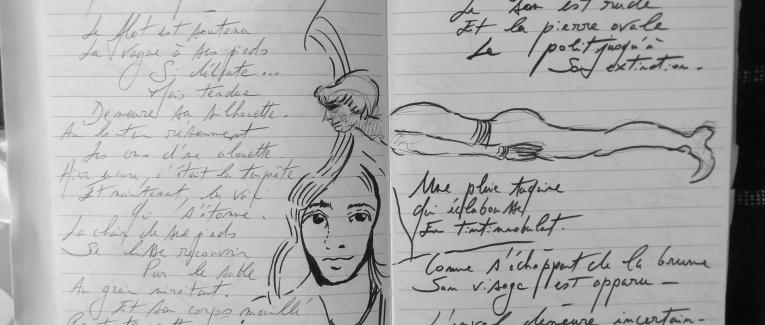 Le flot est soutenu
La vague à ses pieds
Si délicate ...
Mais tendue
Demeure sa silhouette.
Au lointain résonnent
Les cris d'une alouette
Hier encore, c'était la tempête
Et maintenant, la voix
qui s'étonne.
La chair de ses pieds
Se laisse recouvrir
Par le sable
Au grain miroitant.
Et son corps mouillé
Le son est rude
Et la pierre ovale
Le polit jusqu'à
Son extinction.
Une pluie taquine
qui éclabousse
En tintinnabulat.
Comme s'échappant de la brume
Son visage est apparu —
demeure incertain